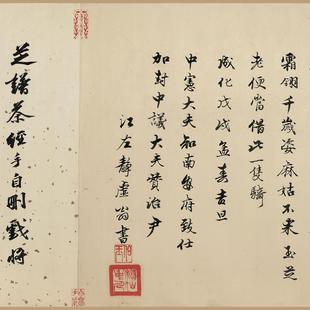 霜翎千歲姿麻姑不來玉芝
老便當借此一隻騎
成化戊戌孟春吉旦
中憲大夫知南安府致仕
加封中議大夫贊治尹
江左靜虛翁書
芝譜茶經手自刪戲將